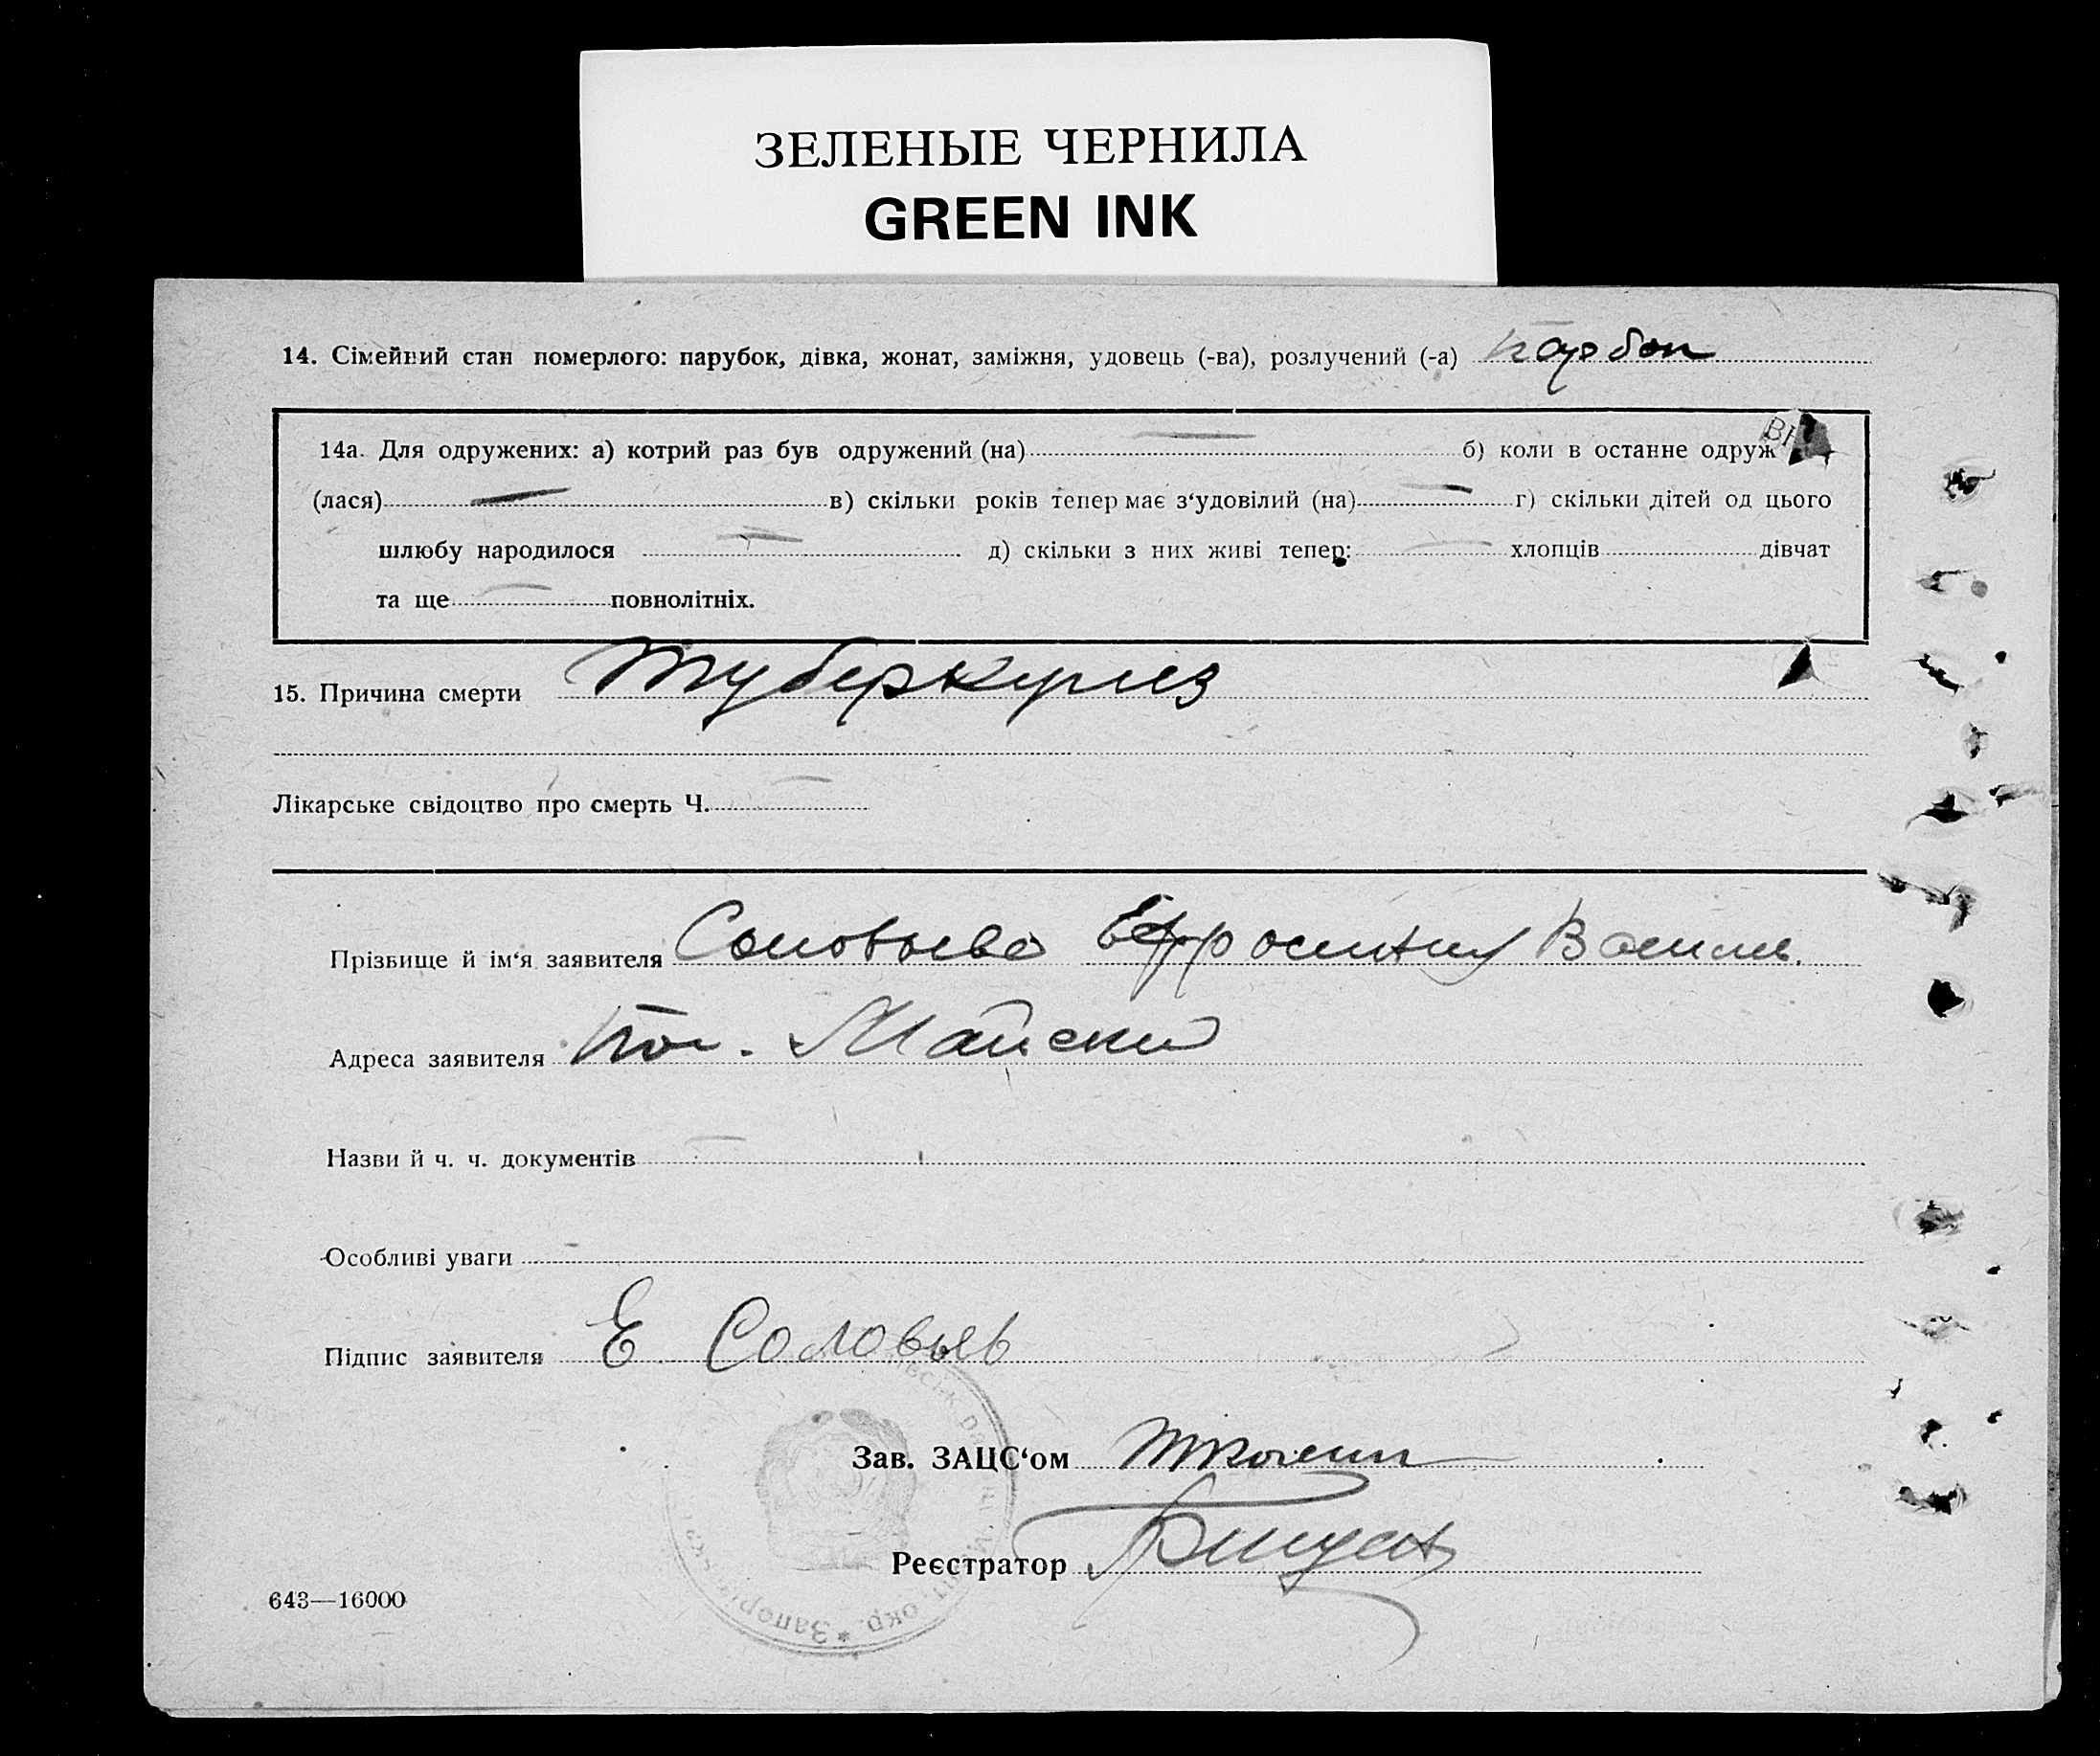 ЗЕЛЕНЫЕ ЧЕРНИЛА
GREEN INK
14. Сімейний стан померлого: парубок, дівка, жонат, заміжня, удовець (-ва), розлучений (-а)
14а. Для одружених: а) котрий раз був одружений (на) б) коли в останне одруж
(лася) в) скільки років тепер має з‘удовілий (на) г) скільки дітей од цього
шлюбу народилося д) скільки з них живі тепер: хлопців дівчат
та ще повнолітніх.
15. Причина смерти Туберкулез
Лікарське свідоцтво про смерть Ч.
Прізвище й ім‘я заявителя Соловьева Ефросиния Василь.
Адреса заявителя пос. Майский
Назви й ч. ч. документів
Особливі уваги
Підпис заявителя Е Соловьев
Зав. ЗАЦС‘ом
Реєстратор
643—16000